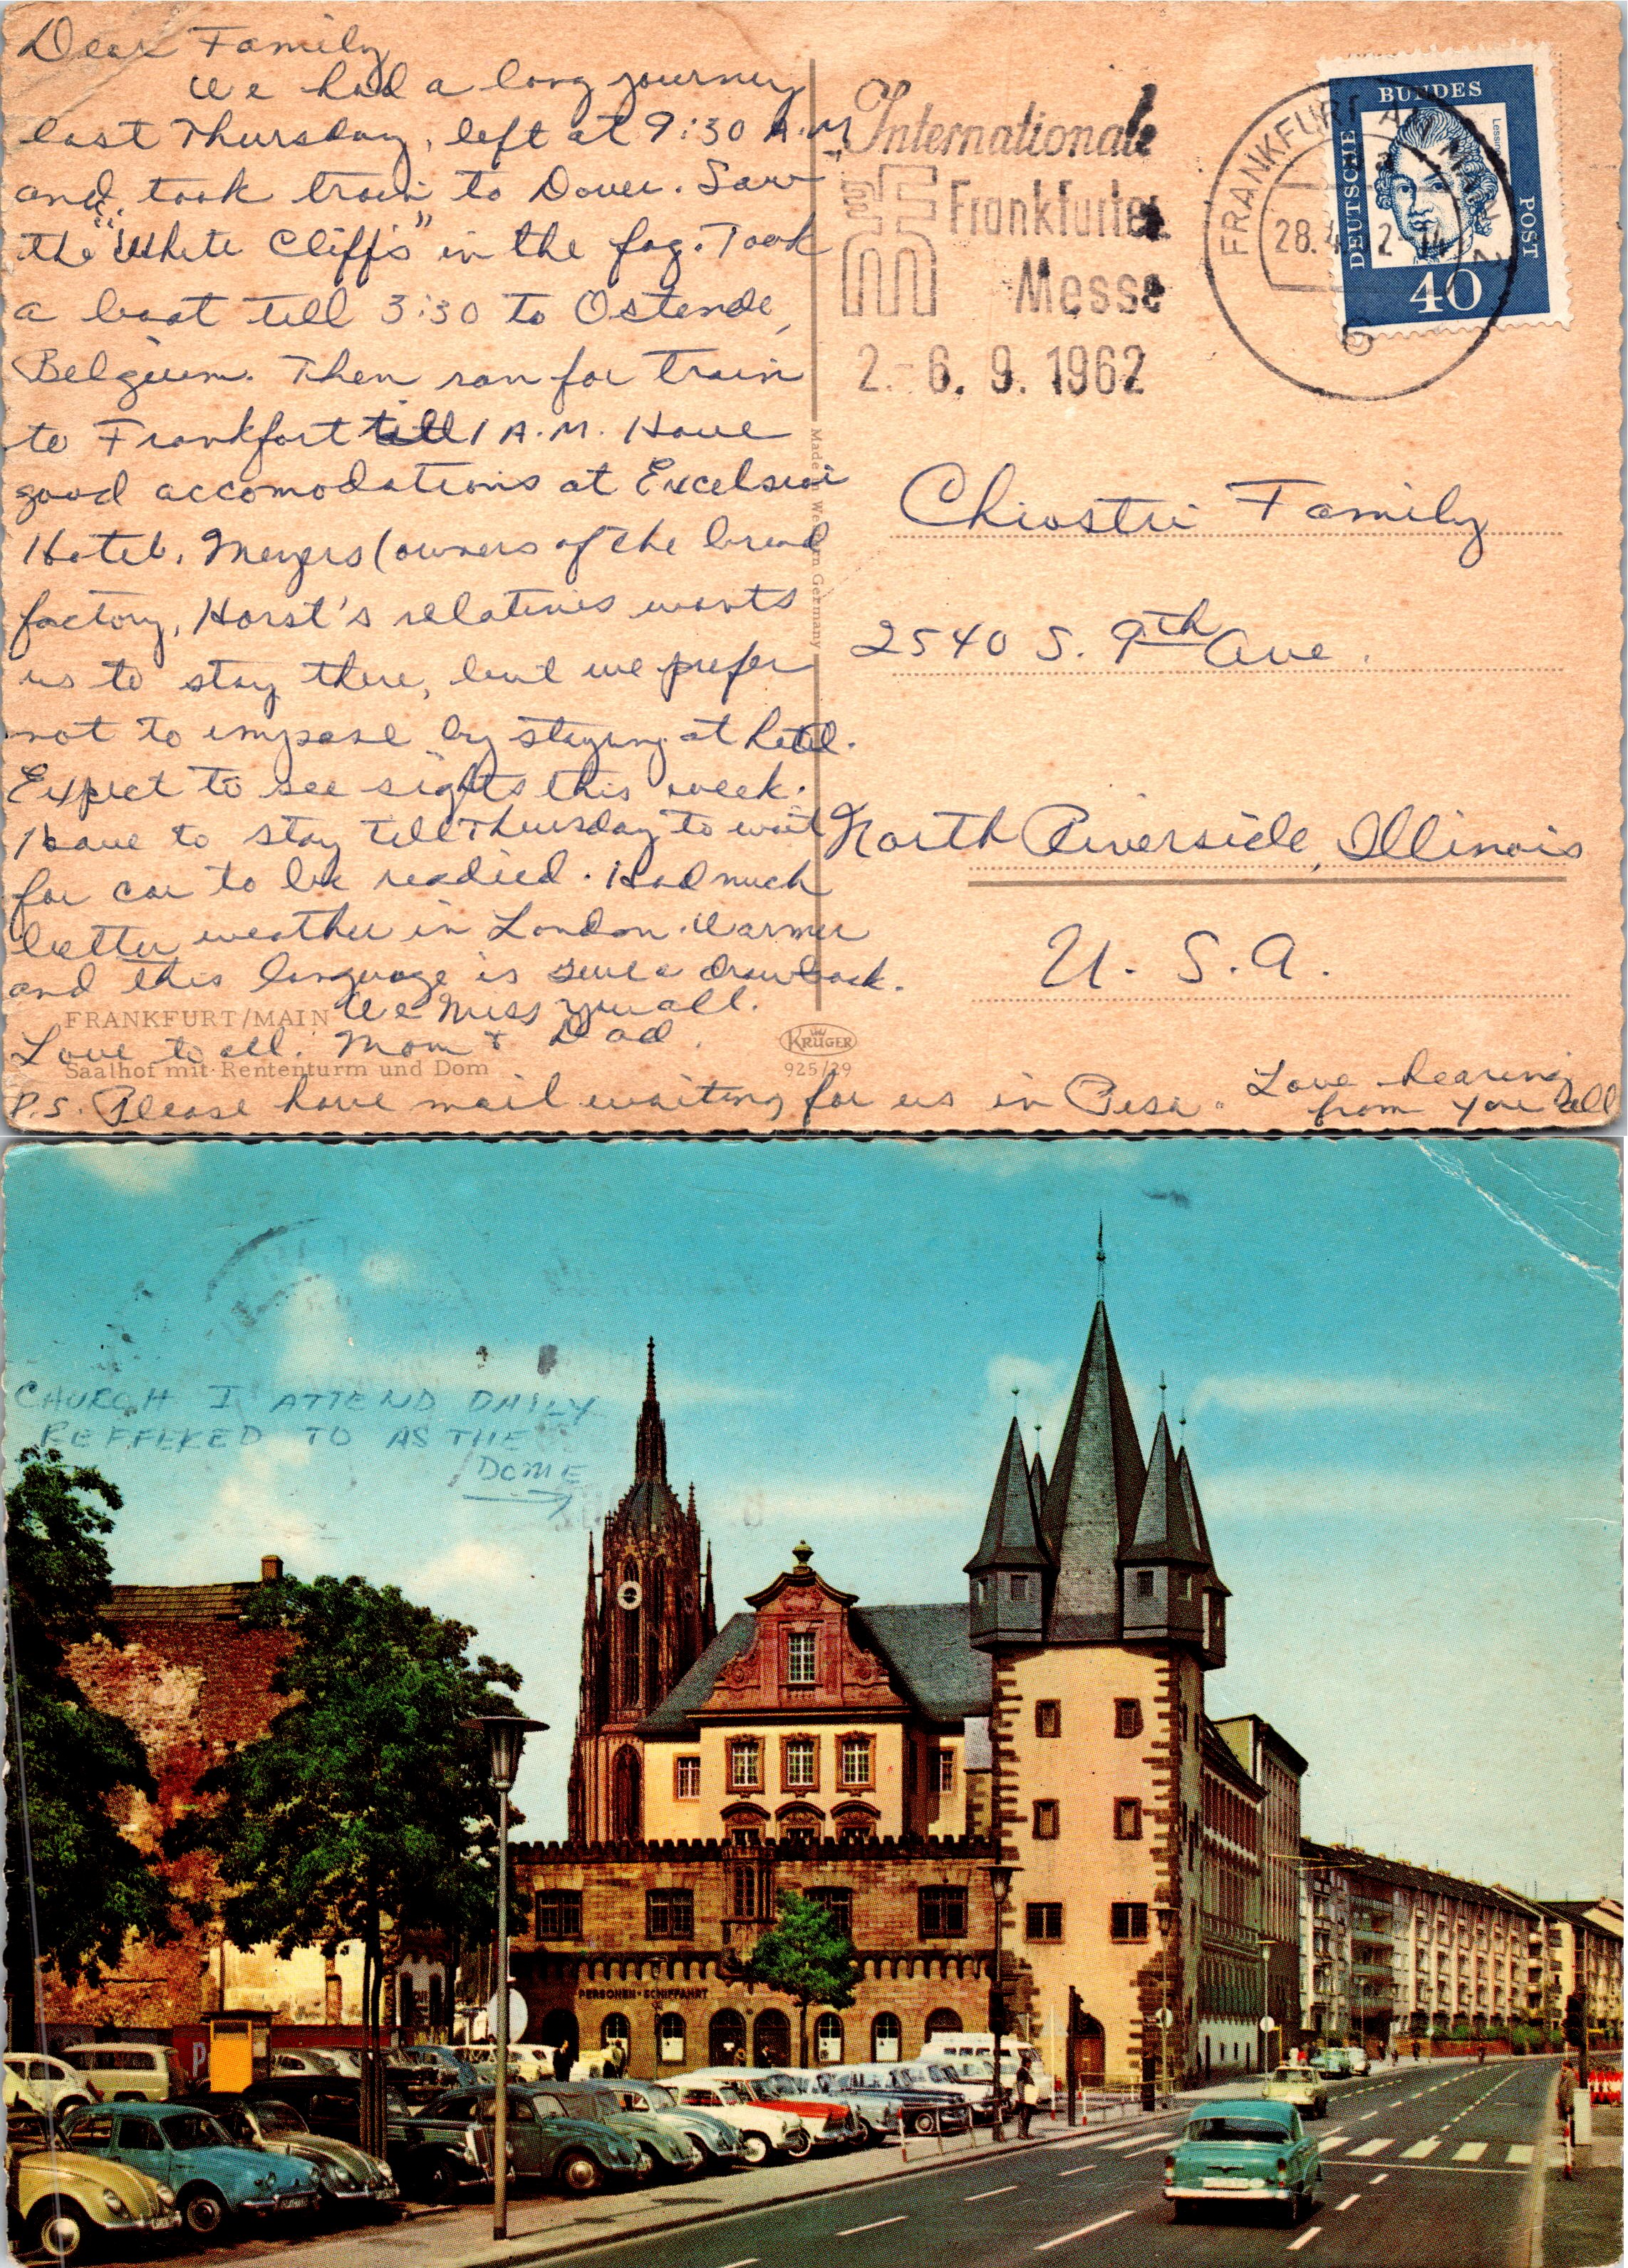 Dear Family
We had a long journey
last Thursday, left at 9:30 A.M.
and took train to Dover. Saw
the "White Cliffs" in the fog. Took
a boat till 3:30 to Ostende,
Belgium. Then ran for train
to Frankfort till 1 A.M. Have
good accomodations at Excelsior
Hotel. Meyers (owners of the bread
factory, Horst's relatives wants
us to stay there, but we prefer
not to impose by staying at hotel.
Expect to see sights this week.
Have to stay till Thursday to wait
for car to be readied. Had much
better weather in London. Warmer
and this language is sure a drawback.
We miss you all.
Love to all. Mom & Dad.
P.S. Please have mail waiting for us in Pisa. Love hearing
from you all
FRANKFURT/MAIN
Saalhof mit Rententurm und Dom
KRÜGER
925/29
Made in Western Germany
Internationale
Frankfurter
Messe
2.-6. 9. 1962
FRANKFURT AM MAIN
28.4
DEUTSCHE
BUNDES
POST
Lessing
40
Chiostri Family
2540 S. 9th Ave.
North Riverside, Illinois
U. S. A.
CHURCH I ATTEND DAILY
REFFERED TO AS THE
DOME
PERSONEN-SCHIFFAHRT
P